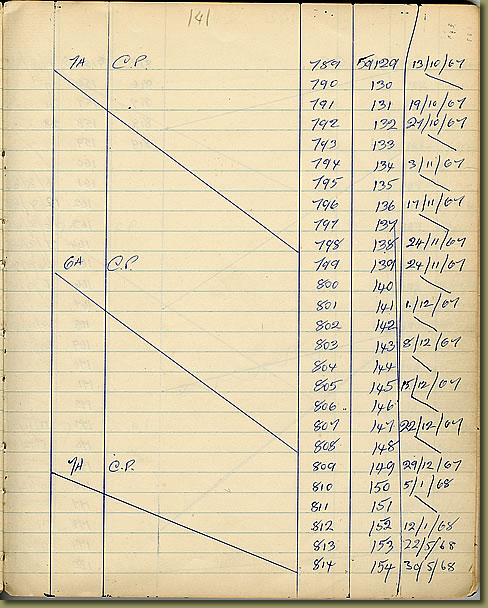 141
7A C.P. 789 59129 13/10/67
790 130
791 131 19/10/67
792 132 27/10/67
793 133
794 134 3/11/67
795 135
796 136 17/11/67
797 137
798 138 24/11/67
6A C.P. 799 139 24/11/67
800 140
801 141 1/12/67
802 142
803 143 8/12/67
804 144
805 145 15/12/67
806 146
807 147 22/12/67
808 148
7A C.P. 809 149 29/12/67
810 150 5/1/68
811 151
812 152 12/1/68
813 153 22/5/68
814 154 30/5/68